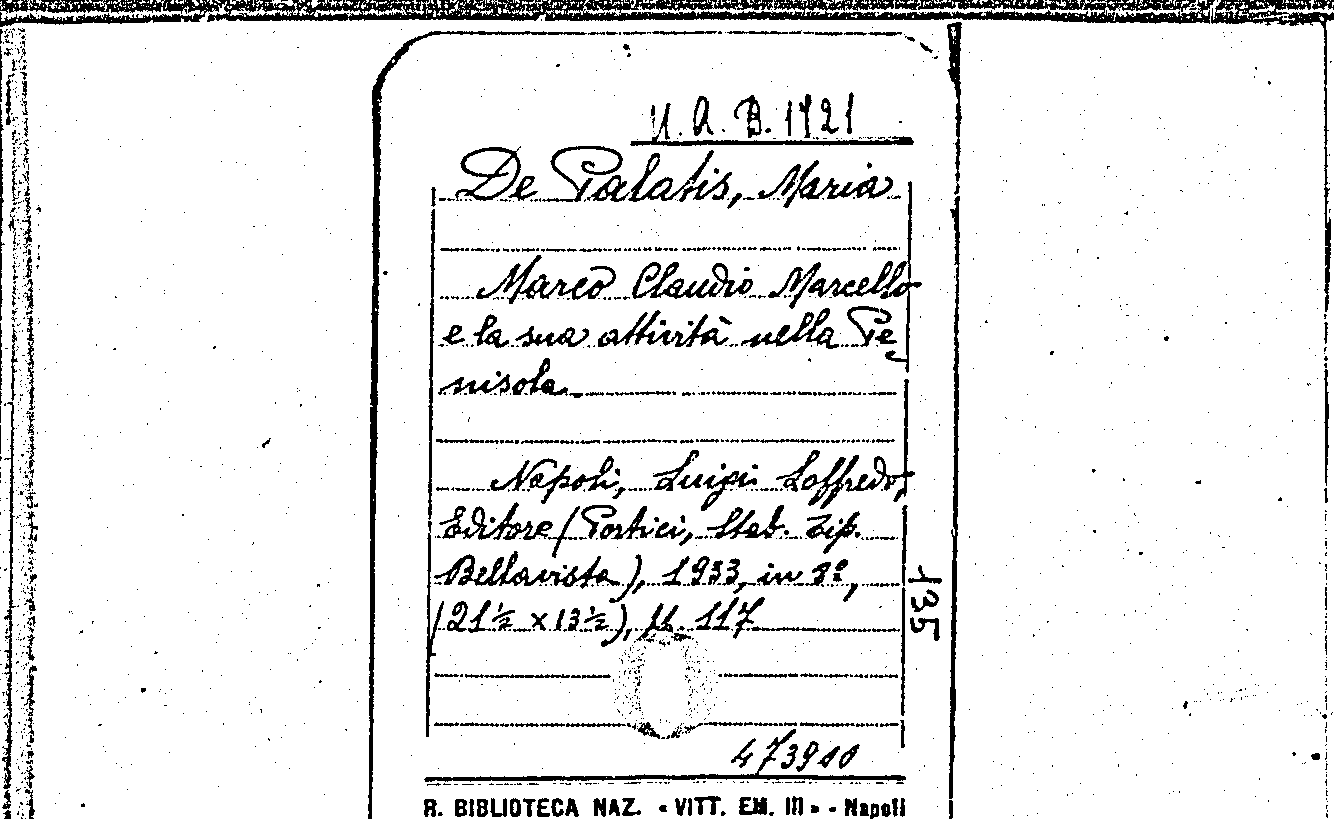 U. A. B. 1721
De Palatis, Maria
Marco Claudio Marcello
e la sua attività nella Pe
nisola
Napoli, Luigi Loffredo,
Editore (Portici, Stab. Tip.
Bellavista), 1933, in 8º,
(21½ x 13½), pp. 117
135
473900
R. BIBLIOTECA NAZ. « VITT. EM. III » - Napoli